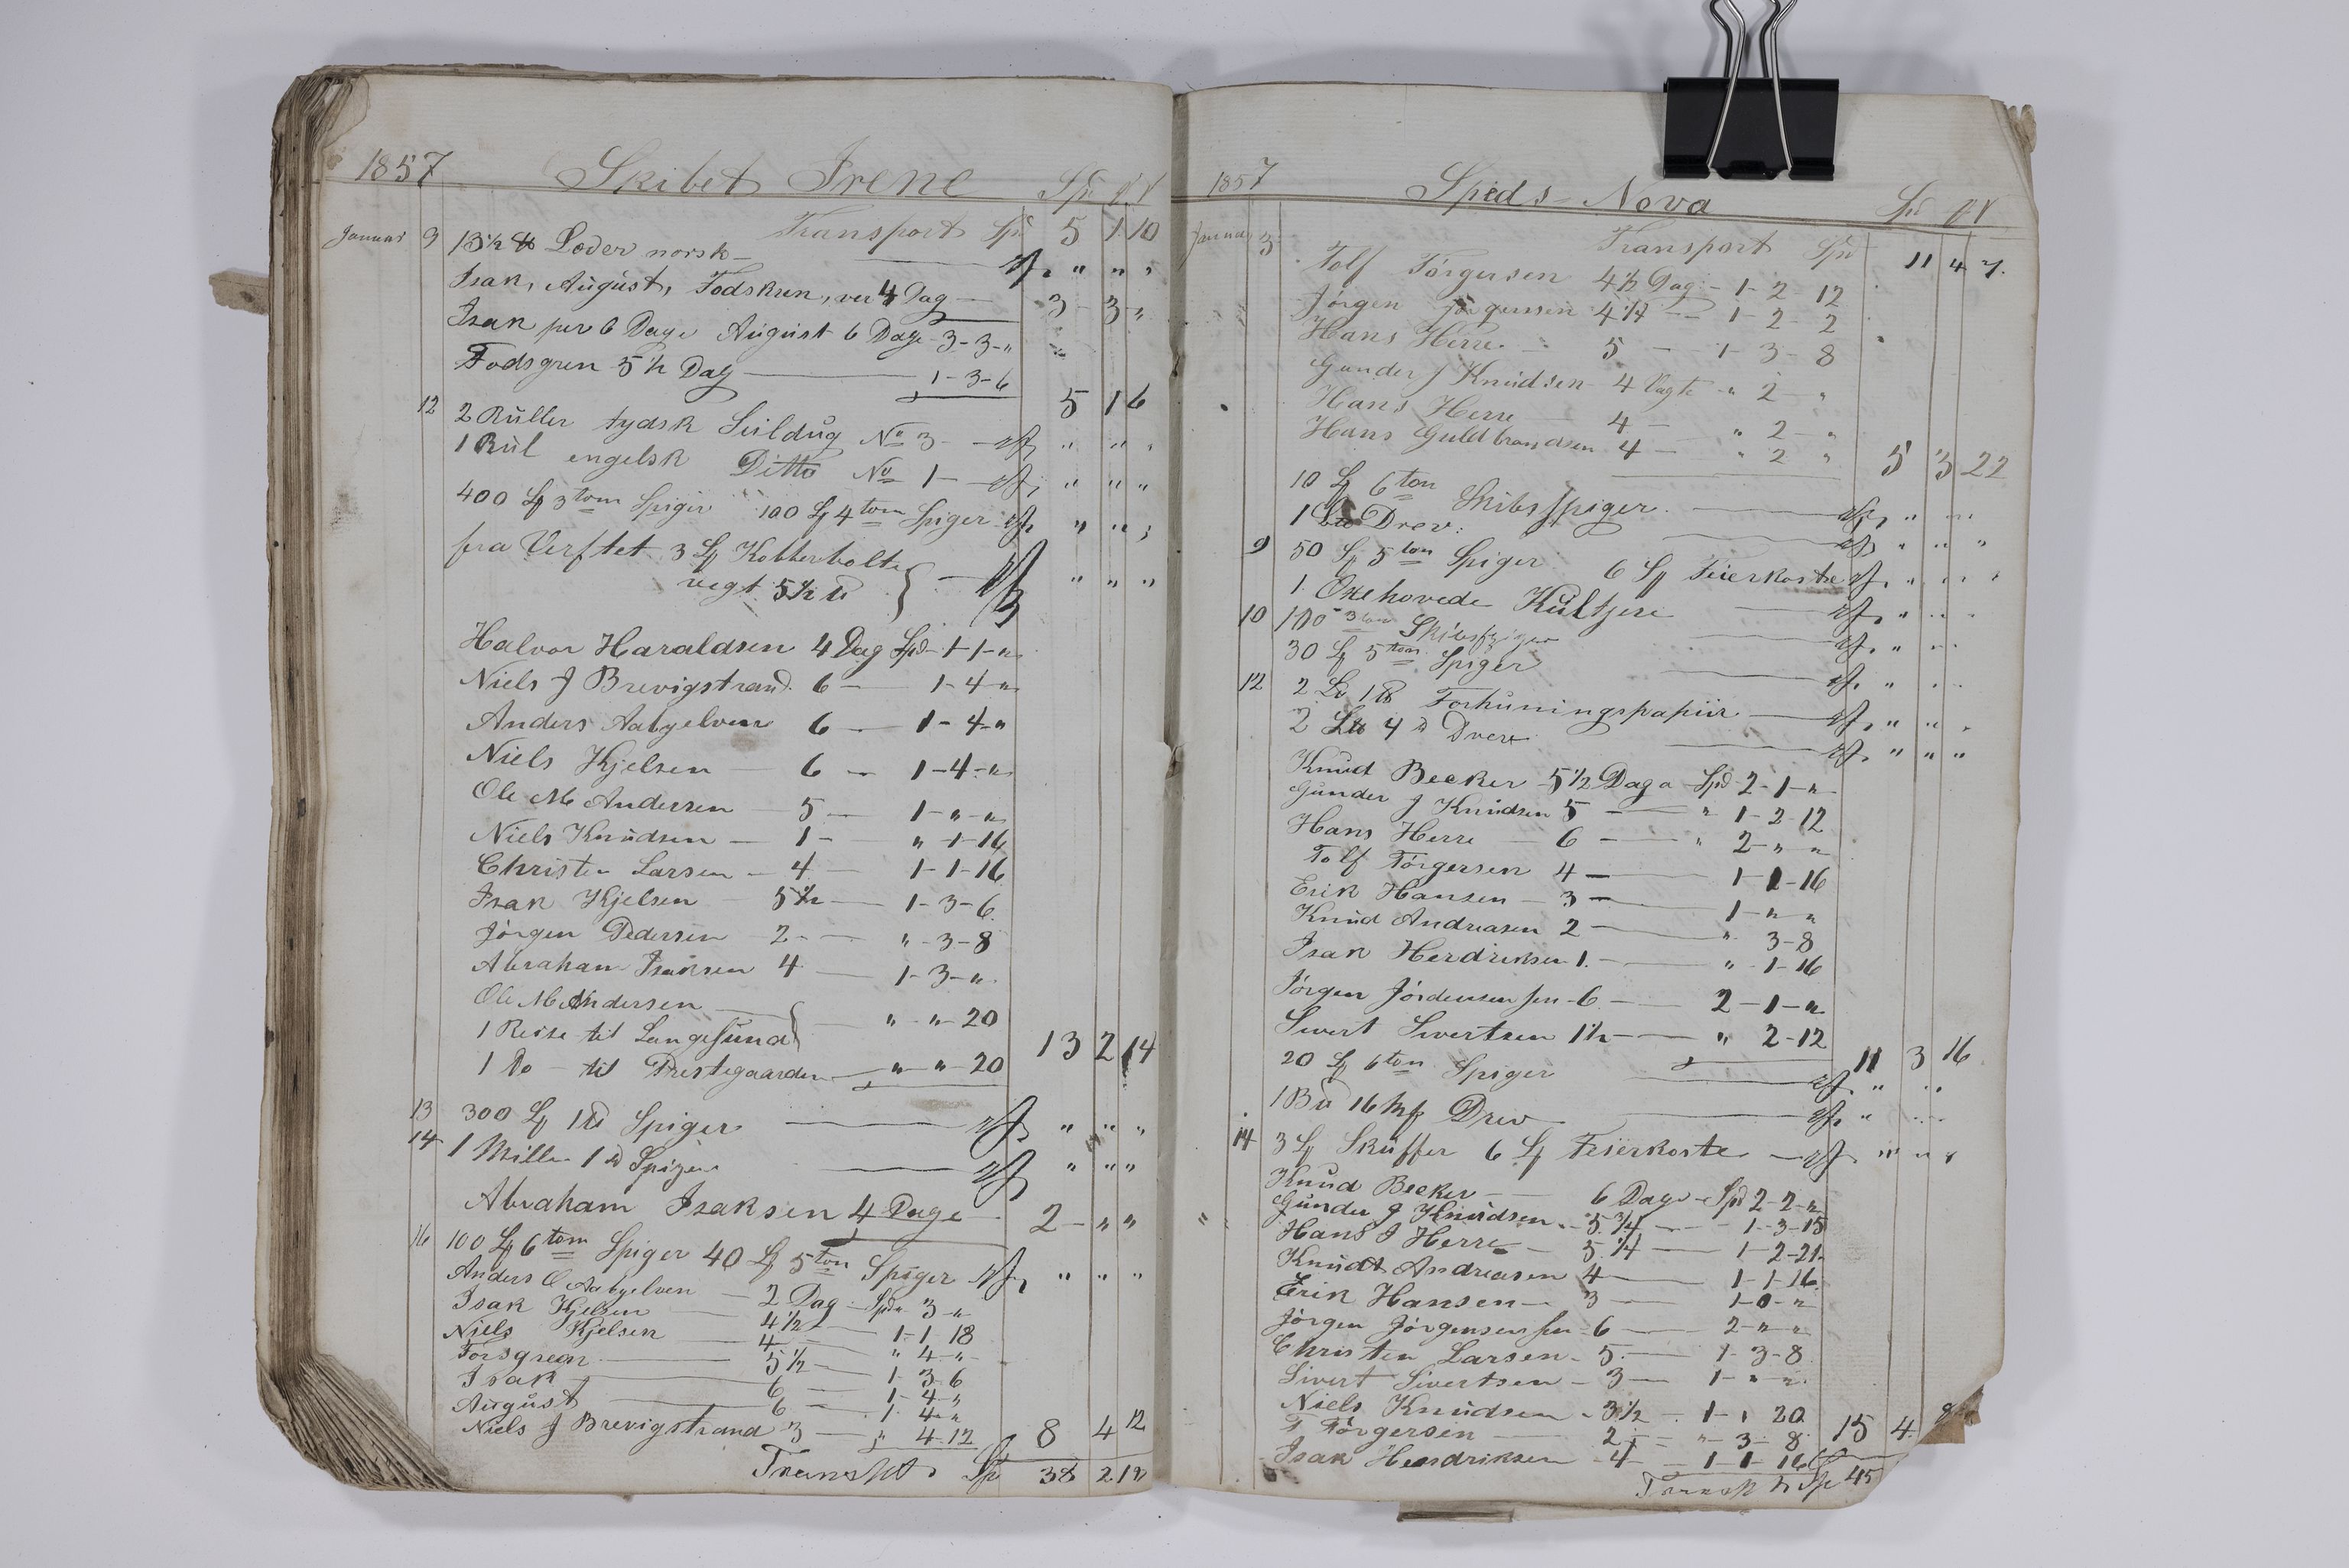 1857 Skibet Irene Spd
Transport Spd 5 1 10
Januar 9 13 1/2 ℔ Læder norsk
Isak, August, Todskren, ver 4 Dag 3 3 "
Isak per 6 Dage August 6 Dage 3-3-"
Todsgren 5 1/2 Dag 1-3-6 5 1 6
12 2 Ruller tydsk Seildug No 3 " " "
1 Rul engelsk Ditto No 1 " " "
400 3 tom Spiger 100 4 tom Spiger " " "
fra Verftet 3 Kobberbolte
vegt 5 1/2 ℔ " " "
Halvor Haraldsen 4 Dag Spd 1-1-"
Niels J Brevigstrand 6 — 1-4-"
Anders Aabyelven 6 — 1-4-"
Niels Kjelsen — 6 — 1-4-"
Ole M Andersen — 5 — 1-"-"
Niels Knudsen — 1 — "-1-16
Christen Larsen — 4 — 1-1-16
Isak Kjelsen — 5 1/2 — 1-3-6
Jörgen Pedersen — 2 — "-3-8
Abraham Isaksen 4 — 1-3-"
Ole M Andersen
1 Reise til Langesund "-"-20
1 Do til Prestegaarden "-"-20 13 2 14
13 300 Spiger " " "
14 1 Mille Spiger " " "
Abraham Isaksen 4 Dage 2 - " "
16 100 6 tom Spiger 40 5 tom Spiger " " "
Anders O Aabyelven — 2 Dag Spd " 3 - "
Isak Kjelsen — 4 1/2 — 1-1 18
Niels Kjelsen — 4 — " 4 - "
Torsgren — 5 1/2 — 1 3 6
Isak — 6 — 1-4-"
August — 6 — 1 4 "
Niels J Brevigstrand 3 — " 4-12 8 4 12
Transpt Sp 38 2 18
1857 Speds-Nova Spd
Transport Spd 11 4 7
Januar 3 Tolf Törgersen 4 1/2 Dag - 1-2-12
Jörgen Jörgensen 4 1/4 — 1-2-2
Hans Herre 5 — 1-3-8
Gunder J Knudsen 4 Vagte " 2 "
Hans Herre 4 — " 2 - "
Hans Guldbrandsen 4 — " 2 " 5 3 22
10 6 tom Skibsspiger
1 Drev
9 50 5 tom Spiger 6 Feierkoste
1 Oxehovede Kultjere
10 100 3 tom Skibsspiger
30 5 tom Spiger
12 2 1 ℔ Forhuningspapiir
2 4 Drev
Knud Becker 5 1/2 Dag a Spd 2-1-"
Gunder J Knudsen 5 — " 1-2-12
Hans Herre — 6 — " 2-"-"
Tolf Törgersen 4 — 1-1-16
Erik Hansen — 3 — 1-"-"
Knud Andreasen 2 — " 3-8
Isak Hendriksen 1 — " 1-16
Jörgen Jördensen sen 6 — 2-1-"
Sivert Sivertsen 1 1/2 — " 2-12 11 3 16
20 6 tom Spiger
1 16 Drev
14 3 Skuffer 6 Feierkoste
Knud Becker — 6 Dage Spd 2-2-"
Gunder J Knudsen 5 3/4 — 1-3-15
Hans J Herre — 5 1/4 — 1-2-21
Knudt Andreasen 4 — 1-1-16
Erik Hansen — 3 — 1-0-"
Jörgen Jörgensen sen 6 — 2-"-"
Christen Larsen 5 — 1-3-8
Sivert Sivertsen — 3 — 1-"-"
Niels Knudsen 3 1/2 — 1-" 20
T Törgersen 2 — " 3-8 15 4
Isak Hendriksen 4 — 1 1 16
Transpt Sp 45